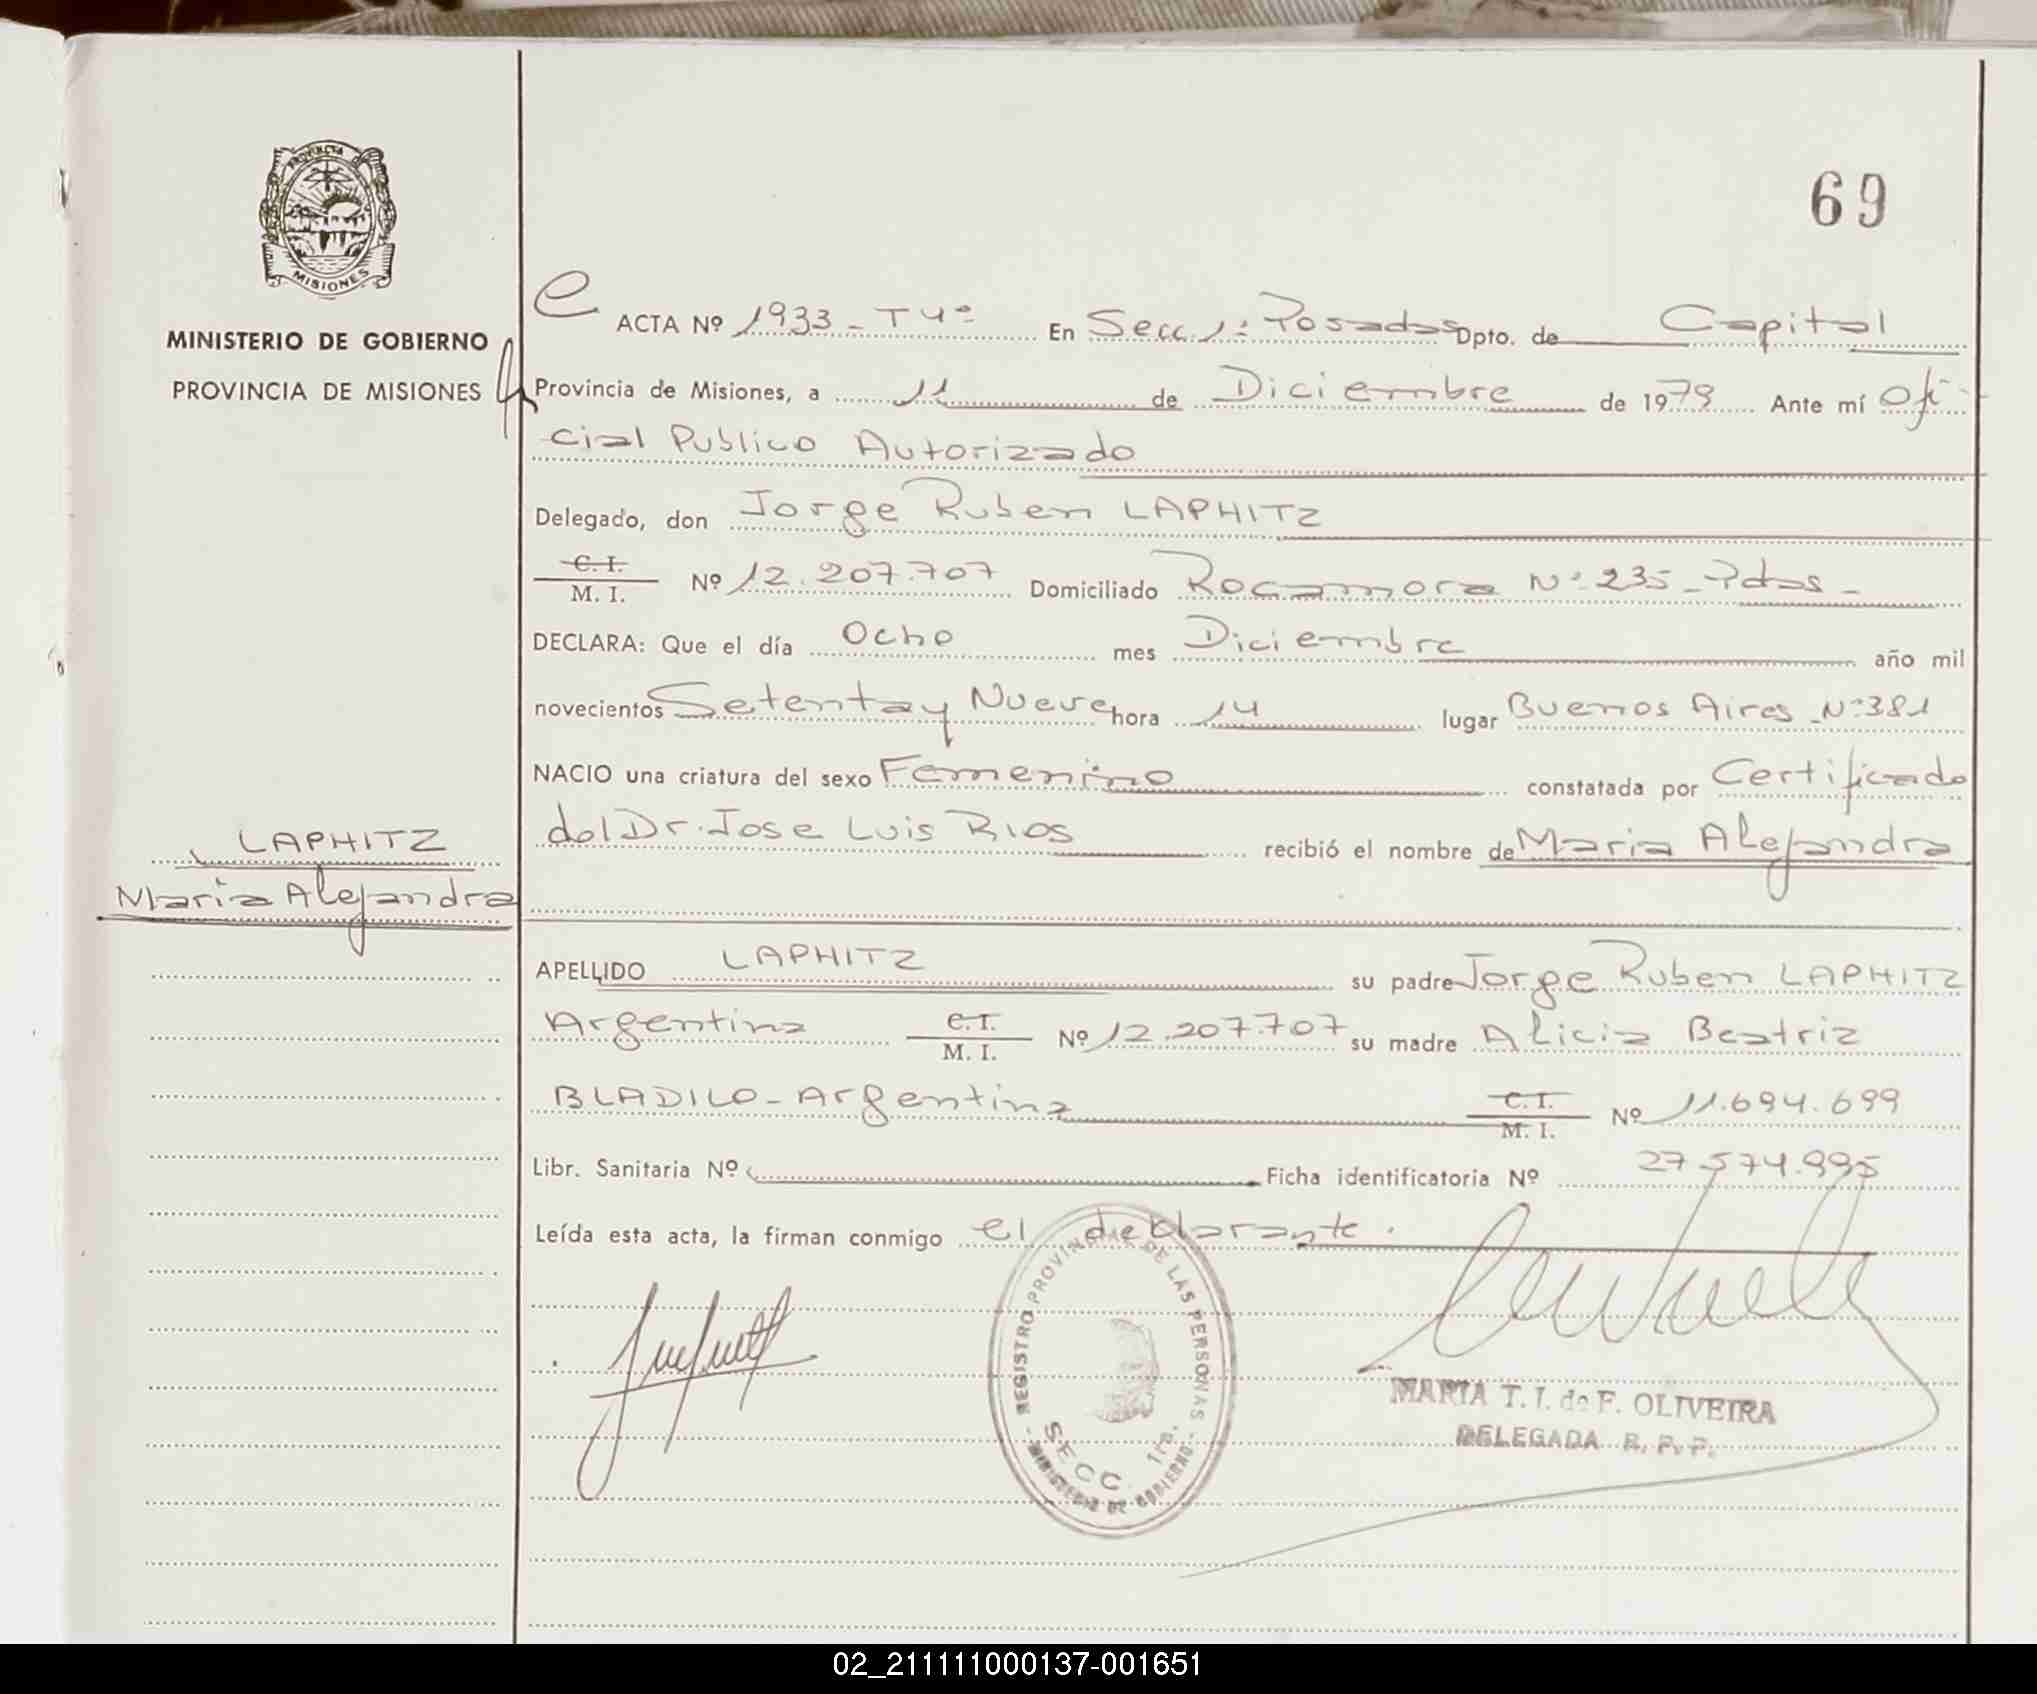 PROVINCIA
MISIONES
MINISTERIO DE GOBIERNO
PROVINCIA DE MISIONES
LAPHITZ
Maria Alejandra
69
ACTA Nº 1933 - T 4º En Secc 1ª Posadas Dpto. de Capital
Provincia de Misiones, a 11 de Diciembre de 1979 Ante mí Ofi-
cial Publico Autorizado
Delegado, don Jorge Ruben LAPHITZ
C. I.
M. I. Nº 12.207.707 Domiciliado Rocamora Nº 235 - Pdas -
DECLARA: Que el día Ocho mes Diciembre año mil
novecientos Setenta y Nueve hora 14 lugar Buenos Aires Nº 381
NACIO una criatura del sexo Femenino constatada por Certificado
del Dr. Jose Luis Rios recibió el nombre de Maria Alejandra
APELLIDO LAPHITZ su padre Jorge Ruben LAPHITZ
Argentina C. I. M. I. Nº 12.207.707 su madre Alicia Beatriz
BLADILO - Argentina C. I. M. I. Nº 11.694.699
Libr. Sanitaria Nº Ficha identificatoria Nº 27.574.995
Leída esta acta, la firman conmigo el deklarante.
REGISTRO PROVINCIAL DE LAS PERSONAS - MINISTERIO DE GOBIERNO -
SECC. 1ra.
MARIA T. I. de F. OLIVEIRA
DELEGADA R. P. P.
02_211111000137-001651